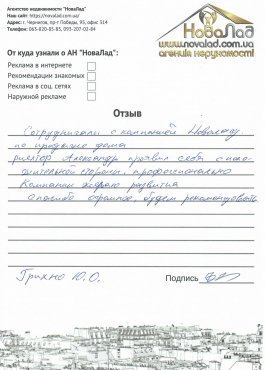 Агентство недвижимости "НоваЛад"
Наш сайт: https://novalad.com.ua/
Адрес: г. Чернигов, пр-т Победы, 95, офис 514
Телефон: 063-820-85-85, 093-207-02-84
НоваЛад
www.novalad.com.ua
агенція нерухомості
От куда узнали о АН "НоваЛад":
Реклама в интернете
Рекомендации знакомых
Реклама в соц. сетях
Наружной рекламе
Отзыв
Сотрудничали с компанией Новалад
по продаже дома
риелтор Александр проявил себя с поло-
жительной стороны, профессионально
Компании желаю развития
Спасибо огромное, будем рекомендовать
Ю.О.
Подпись